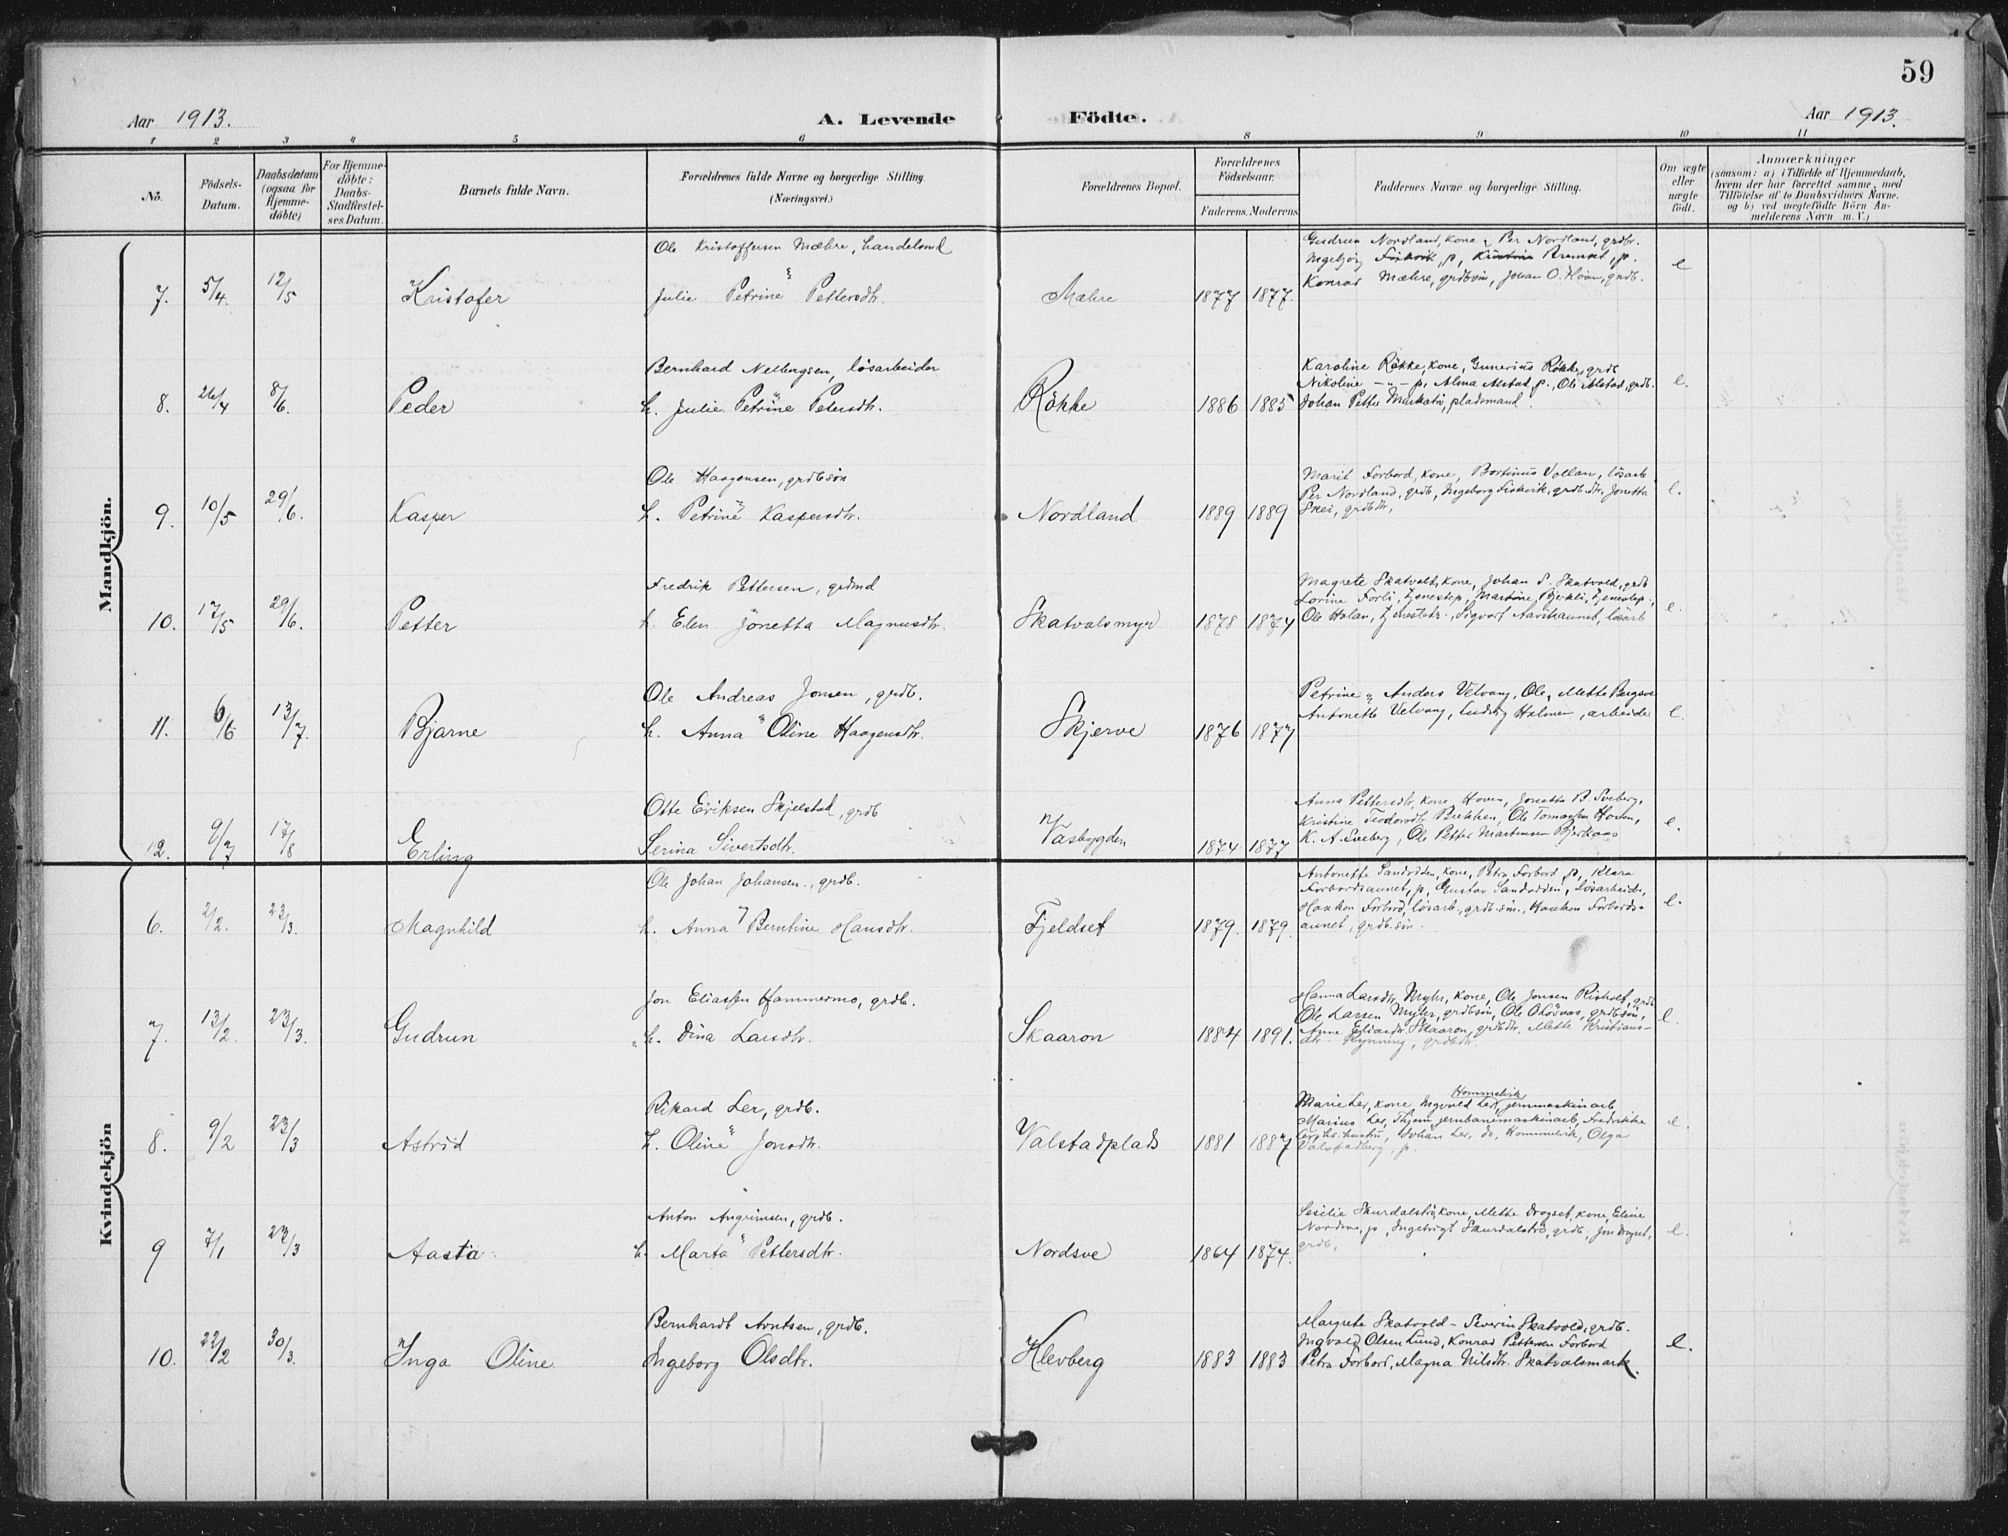 59
Aar 1913. A. Levende Födte. Aar 1913.
1 2 3 4 5 6 8 9 10 11
No. Födsels-Datum. Daabsdatum (ogsaa for Hjemme-döbte) For Hjemme-döbte: Daabs-Stadfæstel-ses Datum. Barnets fulde Navn. Forældrenes fulde Navne og borgerlige Stilling (Næringsvei.) Forældrenes Bopæl. Forældrenes Födselsaar. Faderens. Moderens Faddernes Navne og borgerlige Stilling. Om ægte eller uægte födt. Anmærkninger (saasom: a) i Tilfælde af Hjemmedaab, hvem der har forrettet samme, med Tilföielse af to Daabsvidners Navne. og b) ved uægtefödte Börn An-melderens Navn m. V.)
Mandkjön.
Ole Kristoffersen Mæhre, handelsmd
Gudrun Nordland, kone, Per Nordland, grdbr.
Ingebjörg Fiskvik, p,
Konrad Mæhre, grdbsön, Johan O. Hoön, grdb.
7. 5/4 12/5 Kristofer Julie Petrine Pettersdtr. Mæhre 1877 1877. e
Bernhard Nelbergsen, lösarbeider
Karoline Rökke, kone, Gunerius Rökke, grdb
Nikoline -"- p, Alma Alstad, p., Ole Alstad, grdb.
8. 26/4 8/6. Peder h. Julie Petrine Petersdtr. Rökke 1886 1885 Johan Petter, pladsmand. e.
Ole Haagensen, grdbsön
Marit Forbord, kone, Bortinus Vollan, lösarb
Per Nordland, grdb, Ingeborg Fiskvik, grdb.dtr, Jonetta
Skei, grdbdtr,
9. 10/5 29/6. Kasper h. Petrine Kaspersdtr. Nordland 1889 1889 e.
Fredrik Pettersen, grdmd
Magrete Skatvold, kone, Johan S. Skatvold, grdb
Lorine Forli, tjenestep, Martine, tjenestep.,
10. 17/5 29/6. Petter h. Elen Jonetta Magnusdtr. Skatvalsmyr 1878 1874 Ole Holan, tjenestedr., Sigvart, lösarb e.
Ole Andreas Jonsen, grdb.
Petrine " Anders Velvang, Ole " Mette Bergsve
Antonette Velvang, Ludvig Holmen, arbeider
11. 6/6 13/7. Bjarne h. Anna Oline Haagensdtr. Skjerve 1876 1877 e.
Otte Eriksen Skjelstad, grdb
Anna Pettersdtr, kone, Hoven, Jonetta B. Sveberg,
Kristine Teodorsdtr Brekken, Ole Tomassen Hoven,
K. A. Sveberg, Ole Petter Martinsen Bjerkaas
12. 9/7 17/8 Erling Serina Sivertsdtr. Vasbygden 1874 1877 e.
Kvindekjön
Ole Johan Johansen, grdb.
Antonette Sandvolden, kone, Petra Forbord p, Klara
Forbordsaunet, p, Gustav Sandvolden, lösarbeider,
Haakon Forbord, lösarb., grdb.sön., Haakon Forbords-
aunet, grdb.sön.
6. 2/2. 23/3. Magnhild h. Anna Berntine Hansdtr. Fjeldset 1879. 1879. e.
Jon Eliassen Hammermo, grdb.
Hanna Larsdtr. Myhr, kone, Ole Jonsen, grdb
Ole Larsen Myhr, grdbsön, Ole, grdbsön,
Anne Eliasdtr. Skaaron, grdbdtr. Mette Kristians-
dtr. Rynning, grdbdtr.
7. 13/2 23/3. Gudrun h. Dina Larsdtr. Skaaron 1884 1891. e.
Rikard Ler, grdb.
Hommelvik
Marie Ler, kone, Ingvald Ler, jernmaskinarb,
Marius Ler, Thjem jernbanemaskinarb, Fredrikke
Ler, Johan Ler, do, Hommelvik, Olga
Valstadberg, p.
8. 9/2 23/3 Astrid h. Oline Jonsdtr. Valstadplads 1881 1887 e.
Anton Angrimsen, grdb.
Sesilie Skurdalströ, kone, Mette Drogset, kone, Eline
Nordsve, p, Ingebrigt Skurdalströ, grdb, Jon Drogset,
grdb,
9 7/1 23/3 Aasta h. Marta Pettersdtr. Nordsve 1864 1874. e.
Bernhardt Arntsen, grdb.
Magrete Skatvold - Severin Skatvold, grdb.
Ingvald Olsen Lund, Konrad Pettersen Forbord
10. 22/2 30/3. Inga Oline Ingeborg Olsdtr. Klevberg 1883 1883 Petra Forbord, Magna Nilsdtr. Skatvalsmark. e.